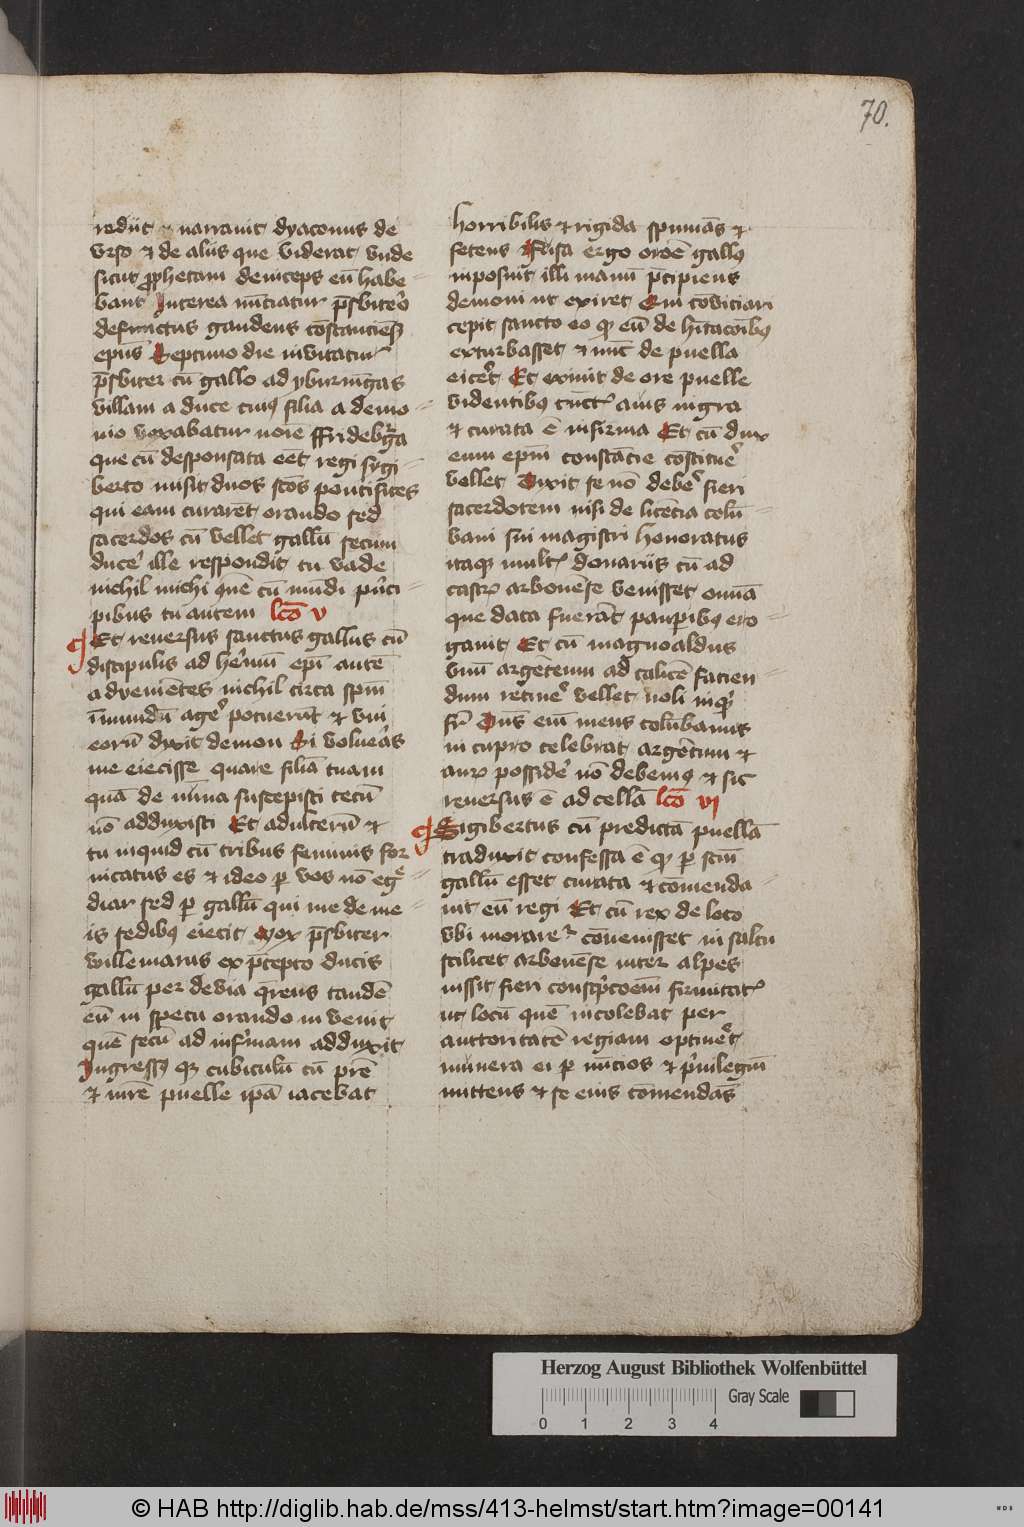 70.
rediit & narrauit dyaconus de
vrso & de aliis que viderat vnde
sicut ꝓphetam deniceps eū habe
bant Interea nūtiatur p̄sbitero
defunctus gaudens cōstanciēs
ep̄us Septimo die inuitatur
p̄sbiter cū gallo ad yburnīgas
villam a duce cuiꝰ filia a demo
nio vexabatur noīe ffridebga
que cū desponsata eēt regi sygi
berto misit duos sc̄os pontifices
qui eam curarēt orando sed
sacerdos cū vellet gallū secum
duce᷑ ille respondit tu vade
nichil michi quē cū mūdi pͥnci
pibus tu autem lcō v
Et reuersus sanctus gallus cū
discipulis ad he᷑mū ep̄i autē
aduenie͂tes nichil circa sp̄m
īmundū age᷑ potuerūt & vni
eorū dixit demon Si volueᷓs
me eiecisse quare filiā tuam
quā de nūna suscepisti tecū
nō adduxisti Et adulterū &
tu inquid cū tribus feminis for
nicatus es & ideo ꝑ vos nō eg͛e
diar sed ꝑ gallū qui me de me
is sedibꝰ eiecit Mox p̄sbiter
willemarus ex p̄cepto ducis
gallū per deuia q̄rens tandē
eū in specu orando in venit
quē secū ad infirmam adduxit
Ingressꝰ qꝫ cubiculū cū prē
& mrē puelle ip̄a iacebat
horribilis & rigida spumās &
fetens ffusa ergo oroē gallꝰ
inposuit illi manū p̄cipiens
demoni ut exiret Qui cōuiciari
cepit sancto eo qꝫ eū de hītacōibꝰ
exturbasset & nūc de puella
eice᷑t Et exiuit de ore puelle
videntibꝰ cūctꝭ auis nigra
& curata ē infirma Et cū dux
eum ep̄m constācie cōstitue᷑
vellet Dixit se nō debe᷑ fieri
sacerdotem nisi de licēcia colū
bani sui magistri honoratus
itaqꝫ multꝭ donariis cū ad
castꝝ arbonēse venisset omīa
que data fuerāt pauꝑibꝰ ero
gauit Et cū magnoaldus
vnū argēteum ad calicē facien
dum retine᷑ vellet noli inqͥt
fr̄ Dn̄s em̄ meus colūbanus
in cupro celebrat argētum &
auꝝ posside᷑ nō debemꝰ & sic
reuersus ē ad cellā lcō vi
Sigibertus cū predictā puellā
traduxit confessa ē qꝫ ꝑ sc̄m
gallū esset curata & comenda
uit eū regi Et cū rex de loco
vbi morare᷑ conuenisset in saltu
scilicet arbonēse inter alpes
iussit fieri cōscͥpcoēm firmitatꝭ
ut locū quē incolebat per
auttoritatē regiam optine᷑t
munera ei ꝑ nūcios & pͥuilegiū
mittens & se eius cōmendās
Herzog August Bibliothek Wolfenbüttel
Gray Scale
0 1 2 3 4
© HAB http://diglib.hab.de/mss/413-helmst/start.htm?image=00141